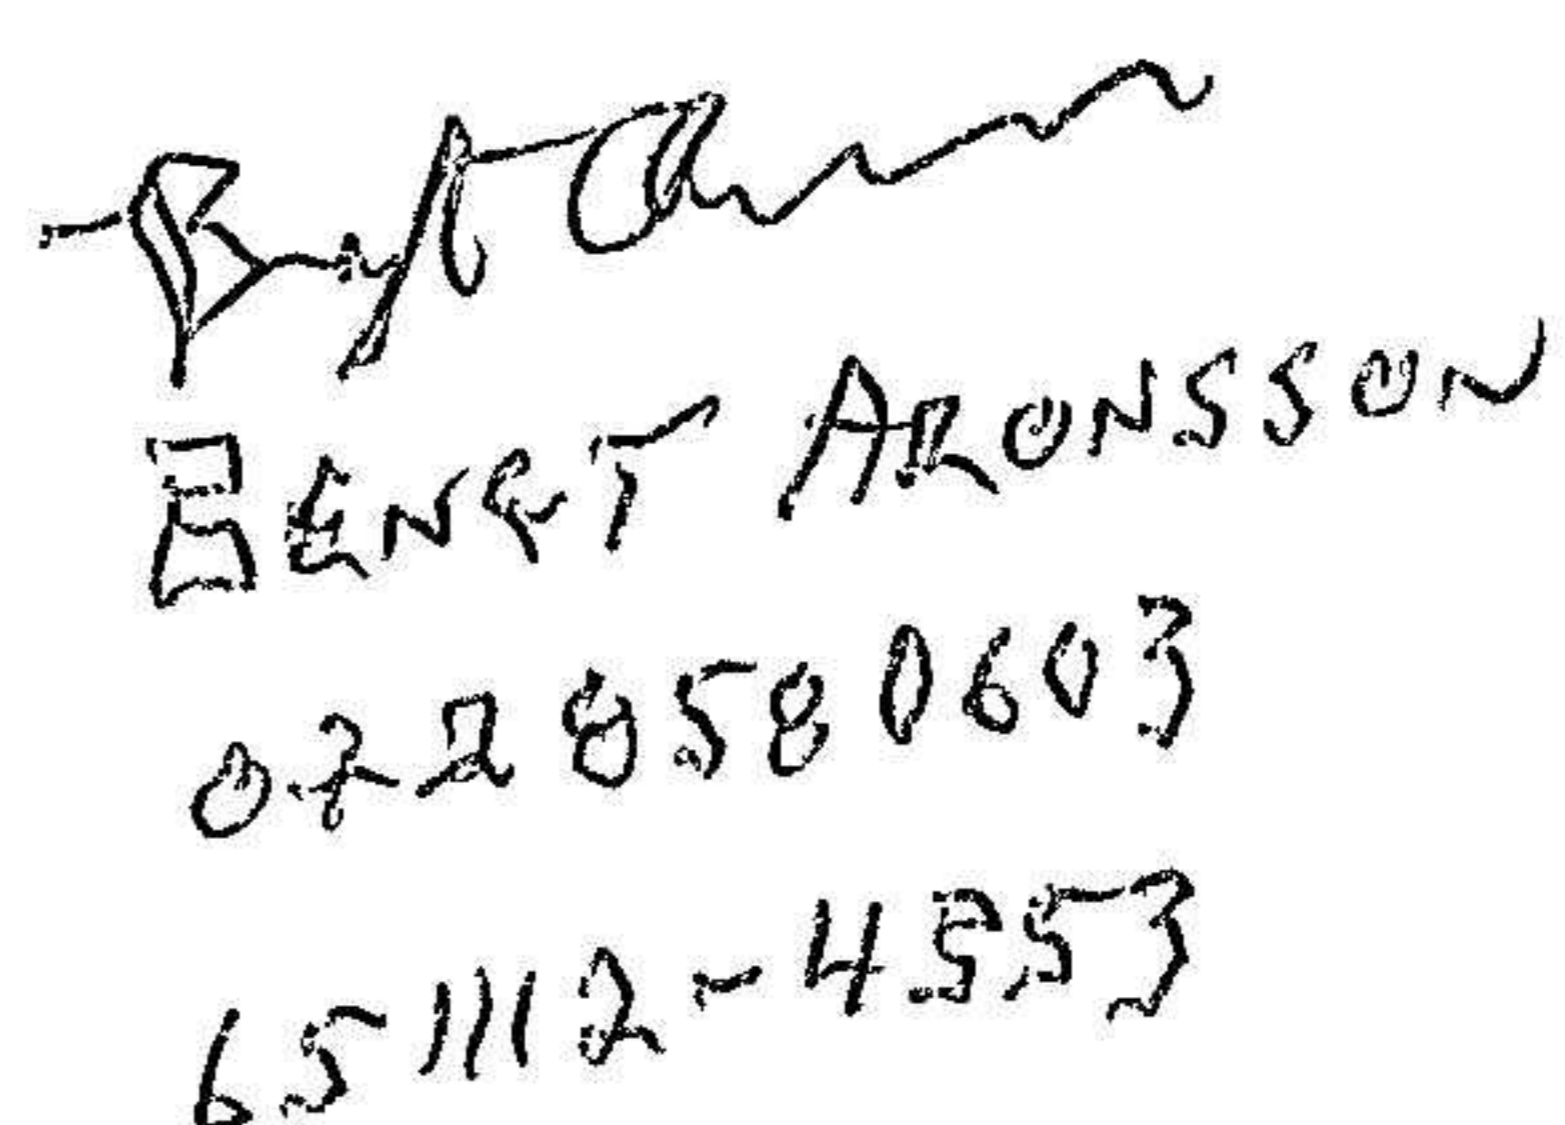 Bengt Aronsson
BENGT ARONSSON
0728580603
651112-4553